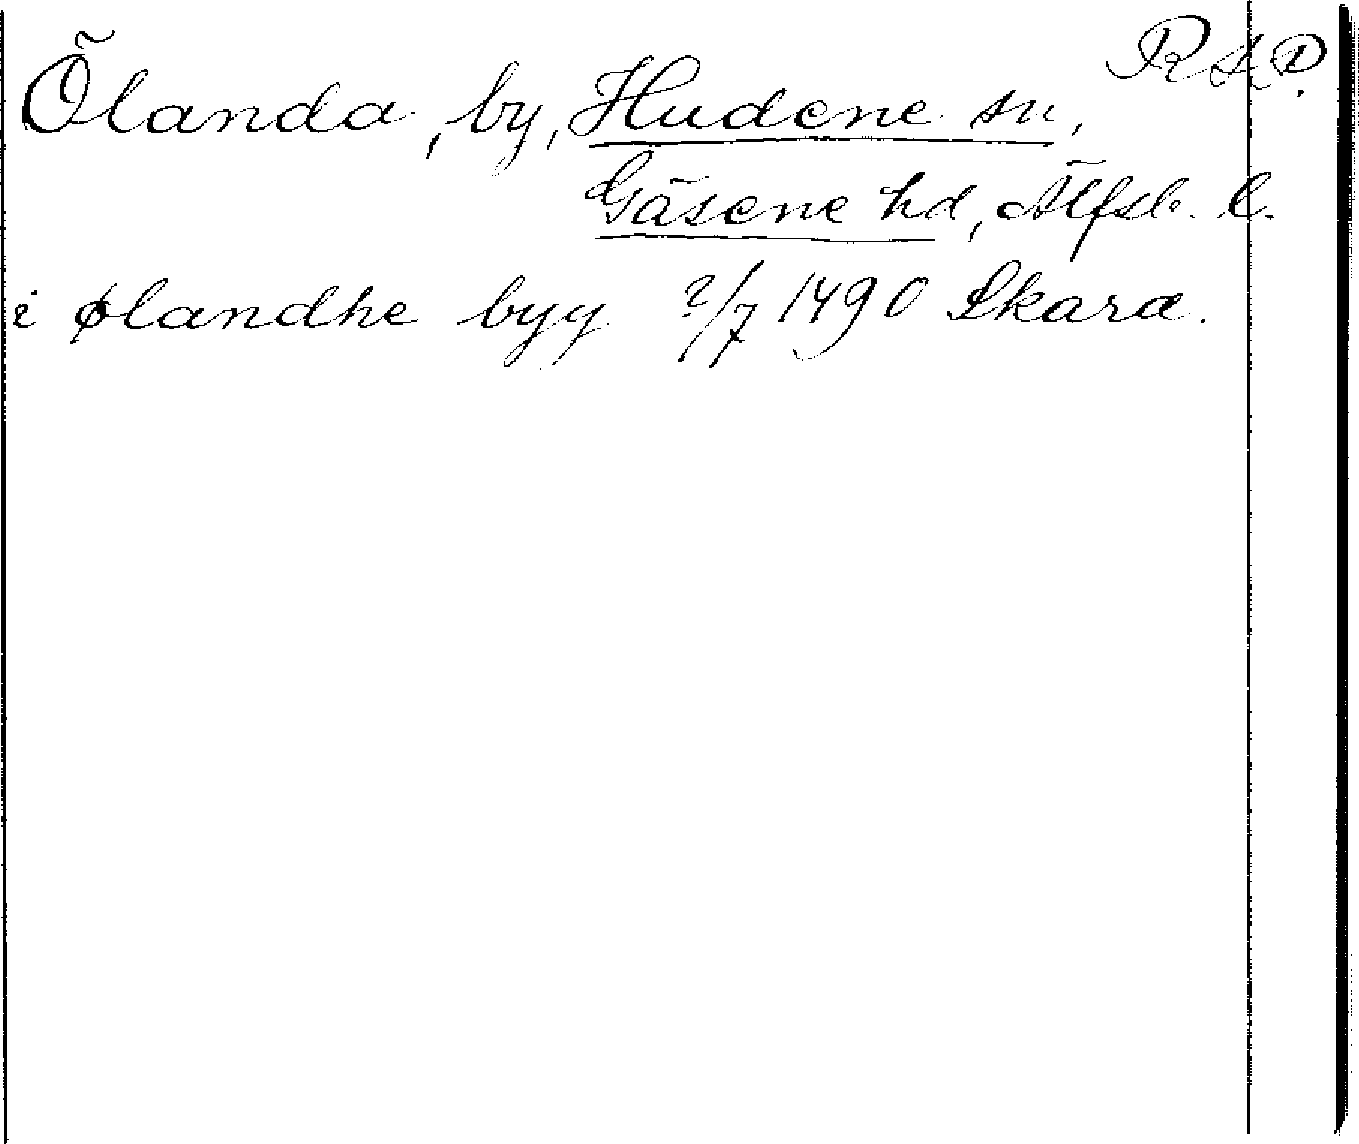 RAP.
Ölanda, by, Hudene sn,
Gäsene hd, Älfsb. l.
i ølandhe byy 2/7 1490 Skara.